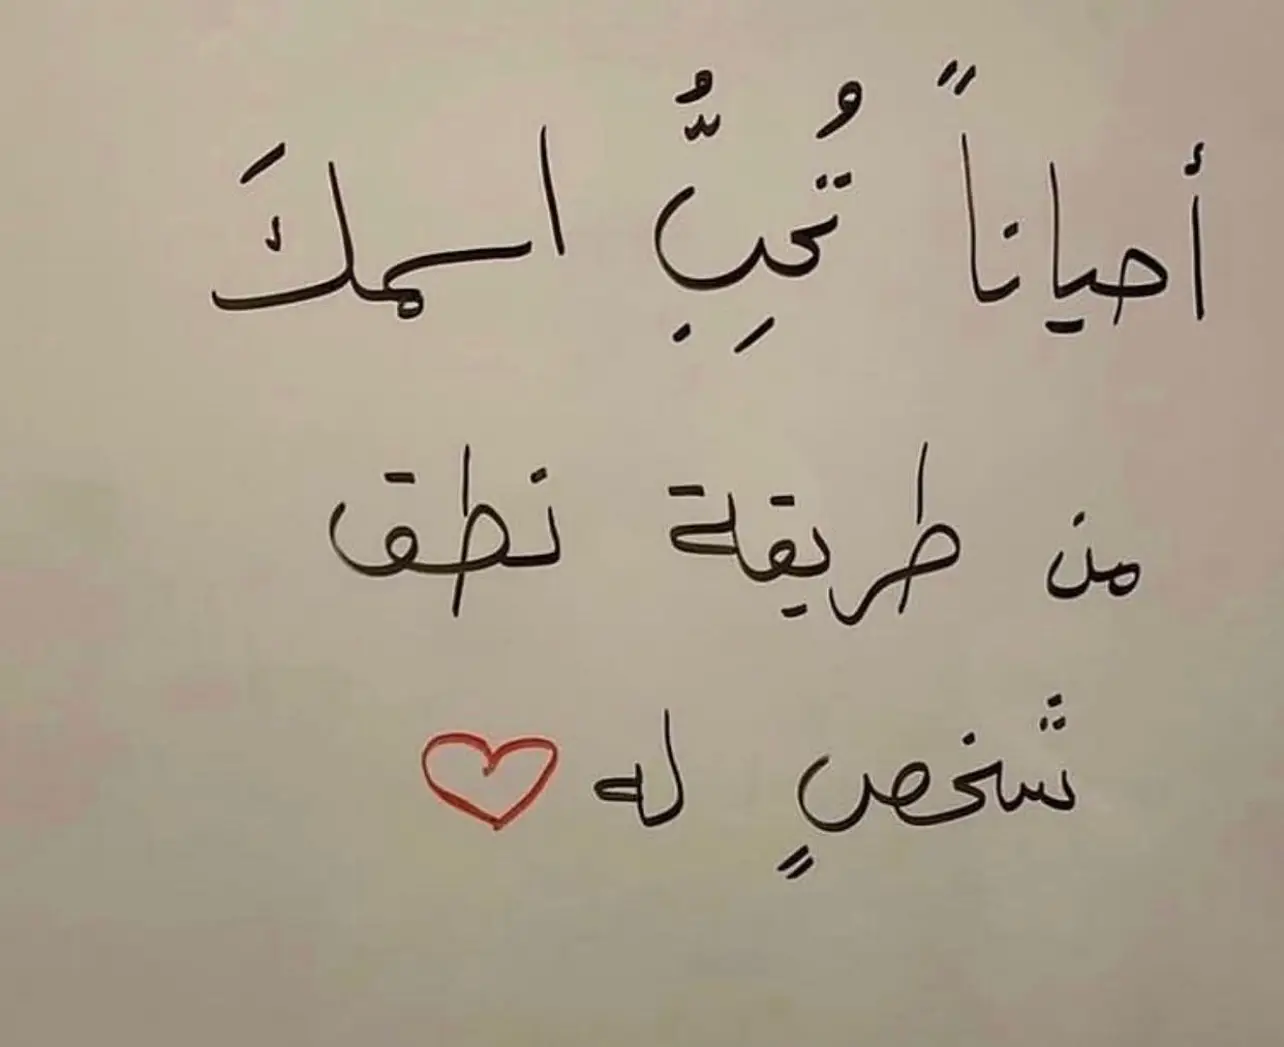 أحياناً تُحِبُّ اسمكَ
من طريقة نطق
شخصٍ له